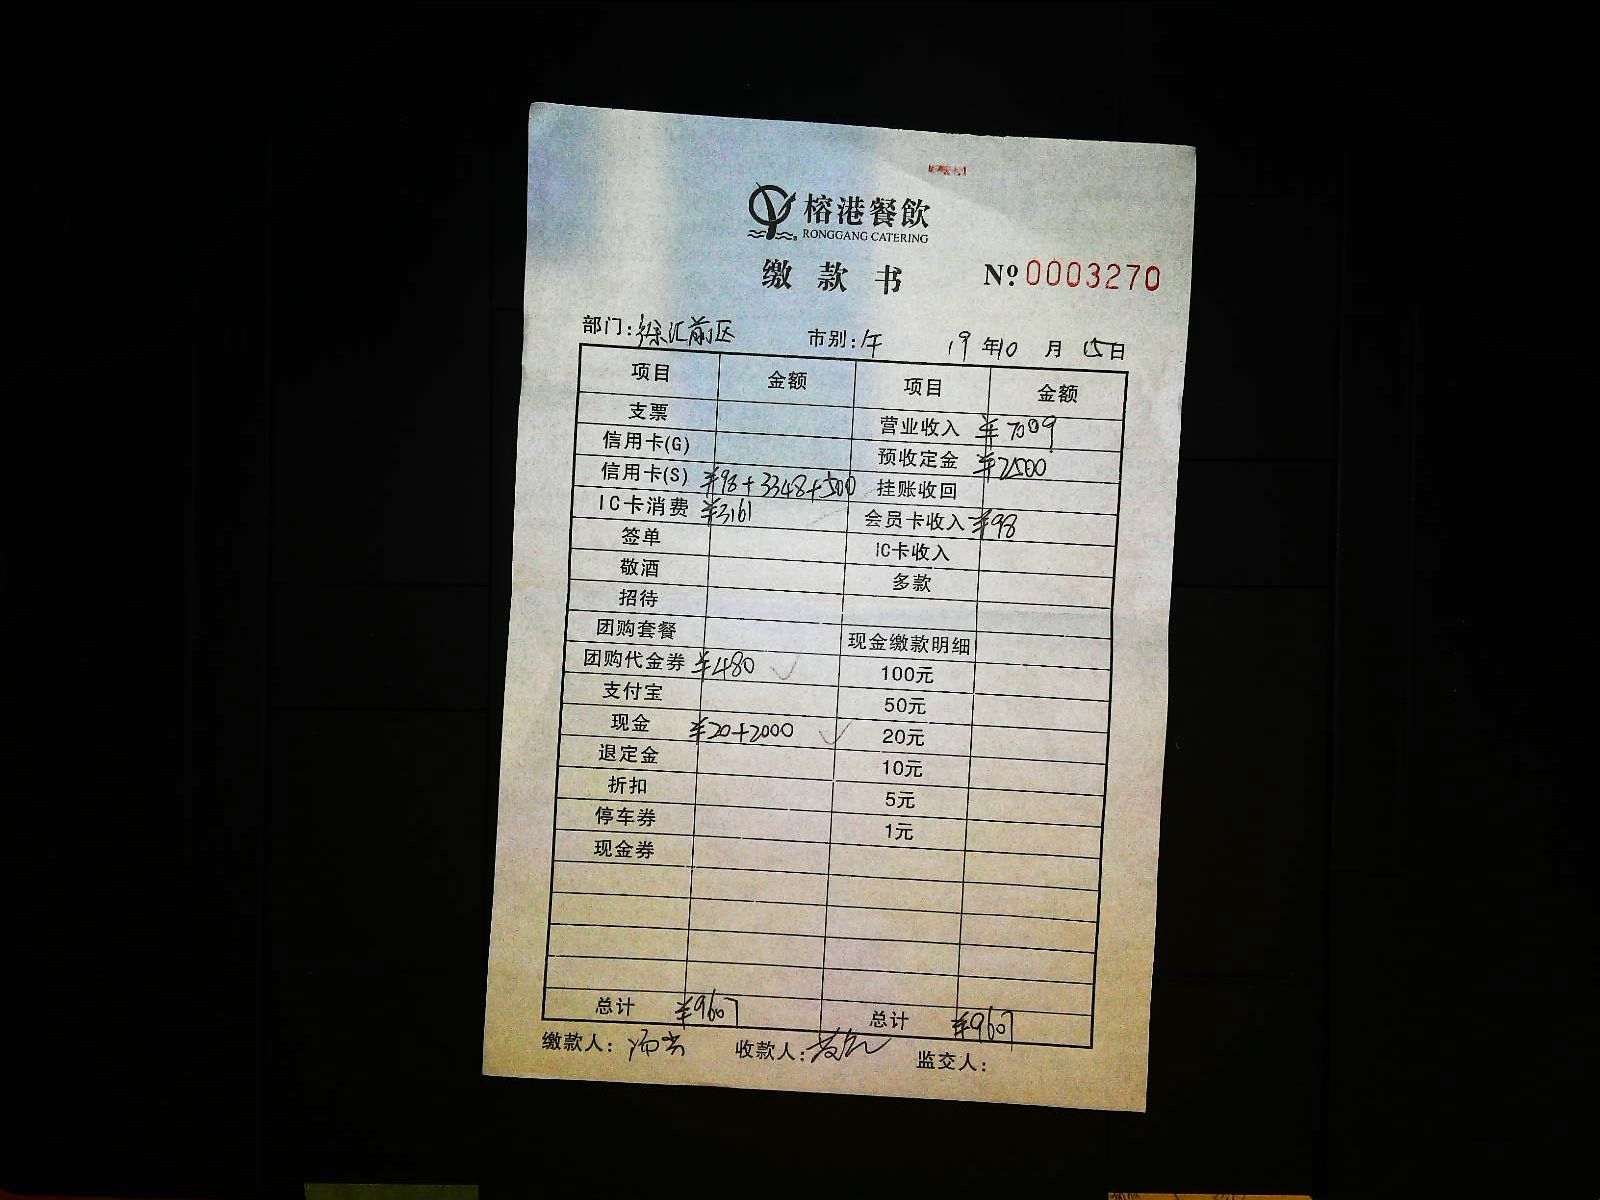 榕港餐飲
RONGGANG CATERING
缴款书 Nº 0003270
部门: 徐汇前区 市别: 午 19年10月15日
项目 金额 项目 金额
支票 营业收入 ¥7009
信用卡(G) 预收定金 ¥2500
信用卡(S) ¥98+3348+500 挂账收回
IC卡消费 ¥3161 会员卡收入 ¥98
签单 IC卡收入
敬酒 多款
招待
团购套餐 现金缴款明细
团购代金券 ¥480 100元
支付宝 50元
现金 ¥20+2000 20元
退定金 10元
折扣 5元
停车券 1元
现金券
总计 ¥9607 总计 ¥9607
缴款人: 收款人: 监交人: